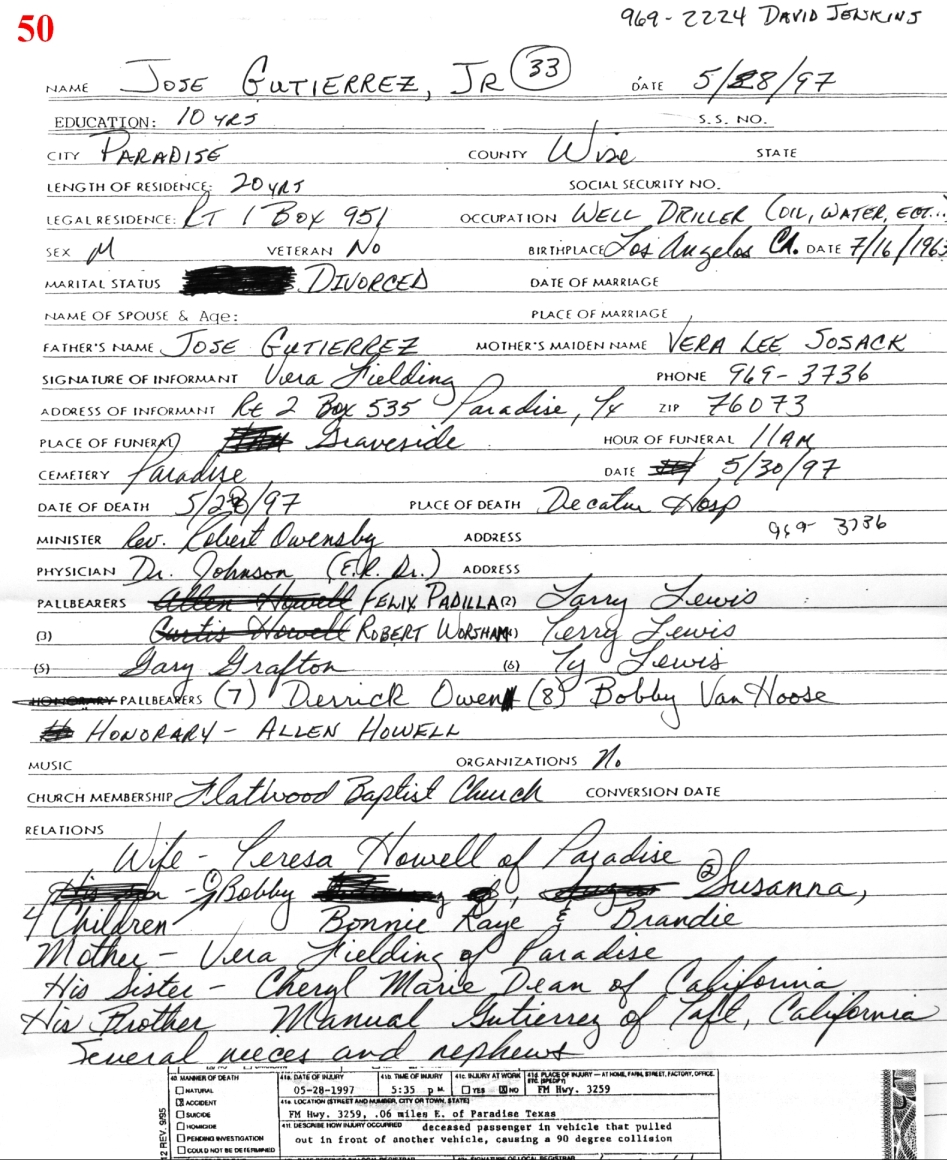 50
969-2224 DAVID JENKINS
NAME JOSE GUTIERREZ, JR 33 DATE 5/28/97
EDUCATION: 10 YRS S.S. NO.
CITY PARADISE COUNTY Wise STATE
LENGTH OF RESIDENCE: 20 YRS SOCIAL SECURITY NO.
LEGAL RESIDENCE: RT 1 BOX 951 OCCUPATION WELL DRILLER (OIL, WATER, ECT...
SEX M VETERAN No BIRTHPLACE Los Angelos CA. DATE 7/16/1963
MARITAL STATUS DIVORCED DATE OF MARRIAGE
NAME OF SPOUSE & Age: PLACE OF MARRIAGE
FATHER'S NAME JOSE GUTIERREZ MOTHER'S MAIDEN NAME VERA LEE JOSACK
SIGNATURE OF INFORMANT Vera Fielding PHONE 969-3736
ADDRESS OF INFORMANT Rt 2 Box 535 Paradise, Tx ZIP 76073
PLACE OF FUNERAL Graveside HOUR OF FUNERAL 11AM
CEMETERY Paradise DATE 5/30/97
DATE OF DEATH 5/28/97 PLACE OF DEATH Decatur Hosp
969-3736
MINISTER Rev. Robert Owensby ADDRESS
PHYSICIAN Dr. Johnson (E.R. Dr.) ADDRESS
PALLBEARERS Allen Howell FELIX PADILLA (2) Larry Lewis
(3) Curtis Howell ROBERT WORSHAM (4) Terry Lewis
(5) Gary Grafton (6) Ty Lewis
HONORARY PALLBEARERS (7) Derrick Owen (8) Bobby Van Hoose
HONORARY - ALLEN HOWELL
MUSIC ORGANIZATIONS No
CHURCH MEMBERSHIP Flatwood Baptist Church CONVERSION DATE
RELATIONS
Wife - Teresa Howell of Paradise
- ① Bobby , ② Susanna,
4 Children Bonnie Raye & Brandie
Mother - Vera Fielding of Paradise
His Sister - Cheryl Marie Dean of California
His Brother Manual Gutierrez of Taft, California
Several nieces and nephews
40 MANNER OF DEATH 41a. DATE OF INJURY 41b. TIME OF INJURY 41c. INJURY AT WORK 41d. PLACE OF INJURY — AT HOME, FARM, STREET, FACTORY, OFFICE, ETC. (SPECIFY)
☐ NATURAL 05-28-1997 5:35 P M. ☐ YES ☒ NO FM Hwy. 3259
☒ ACCIDENT 41e. LOCATION (STREET AND NUMBER, CITY OR TOWN, STATE)
☐ SUICIDE FM Hwy. 3259, .06 miles E. of Paradise Texas
☐ HOMICIDE 41f. DESCRIBE HOW INJURY OCCURRED deceased passenger in vehicle that pulled
☐ PENDING INVESTIGATION out in front of another vehicle, causing a 90 degree collision
☐ COULD NOT BE DETERMINED
12 REV. 9/95